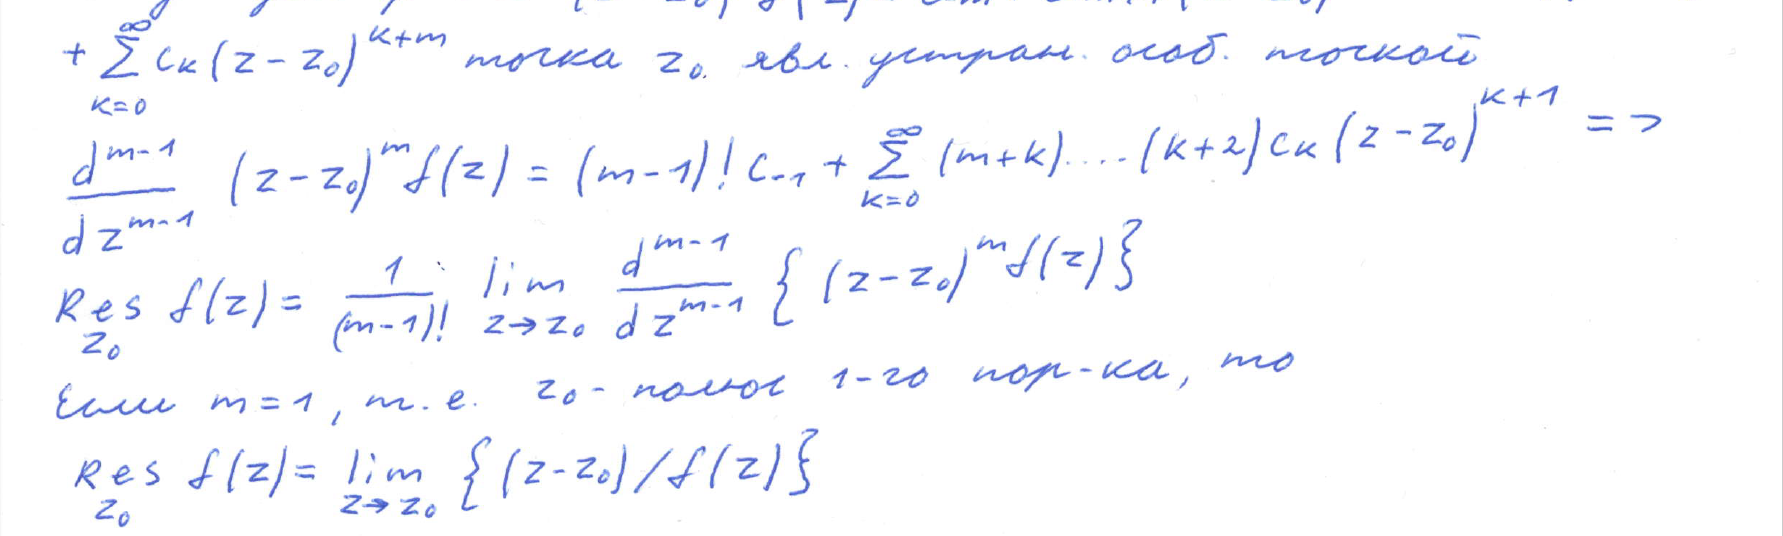 + ∑_{k=0}^{∞} c_k (z-z_0)^{k+m} точка z_0. явл. устран. особ. точкой
d^{m-1}/dz^{m-1} (z-z_0)^m f(z) = (m-1)! c_{-1} + ∑_{k=0}^{∞} (m+k)....(k+2) c_k (z-z_0)^{k+1} =>
Res_{z_0} f(z) = 1/(m-1)! lim_{z→z_0} d^{m-1}/dz^{m-1} { (z-z_0)^m f(z) }
Если m=1, т.е. z_0 - полюс 1-го пор-ка, то
Res_{z_0} f(z) = lim_{z→z_0} { (z-z_0) / f(z) }